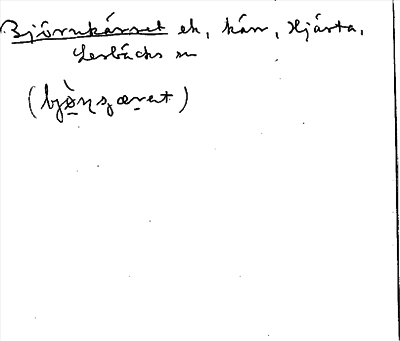 Björnkärret ek, kärr, Hjärta,
Lerbäcks sn
(bjö̀ṇʂæret)